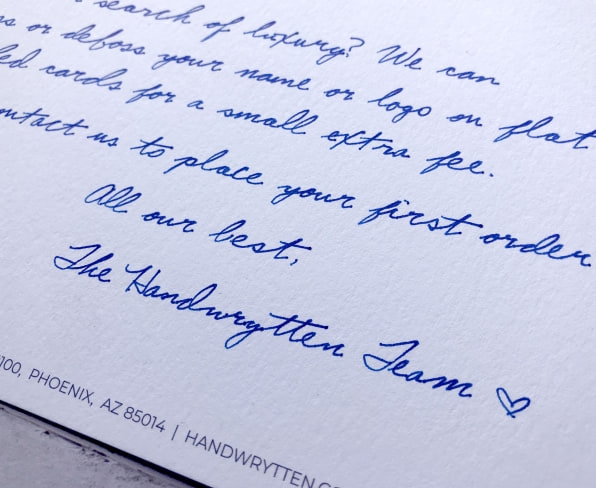 search of luxury? We can
or deboss your name or logo on flat
cards for a small extra fee.
us to place your first order
All our best,
The Handwrytten Team ♡
100, PHOENIX, AZ 85014 | HANDWRYTTEN.